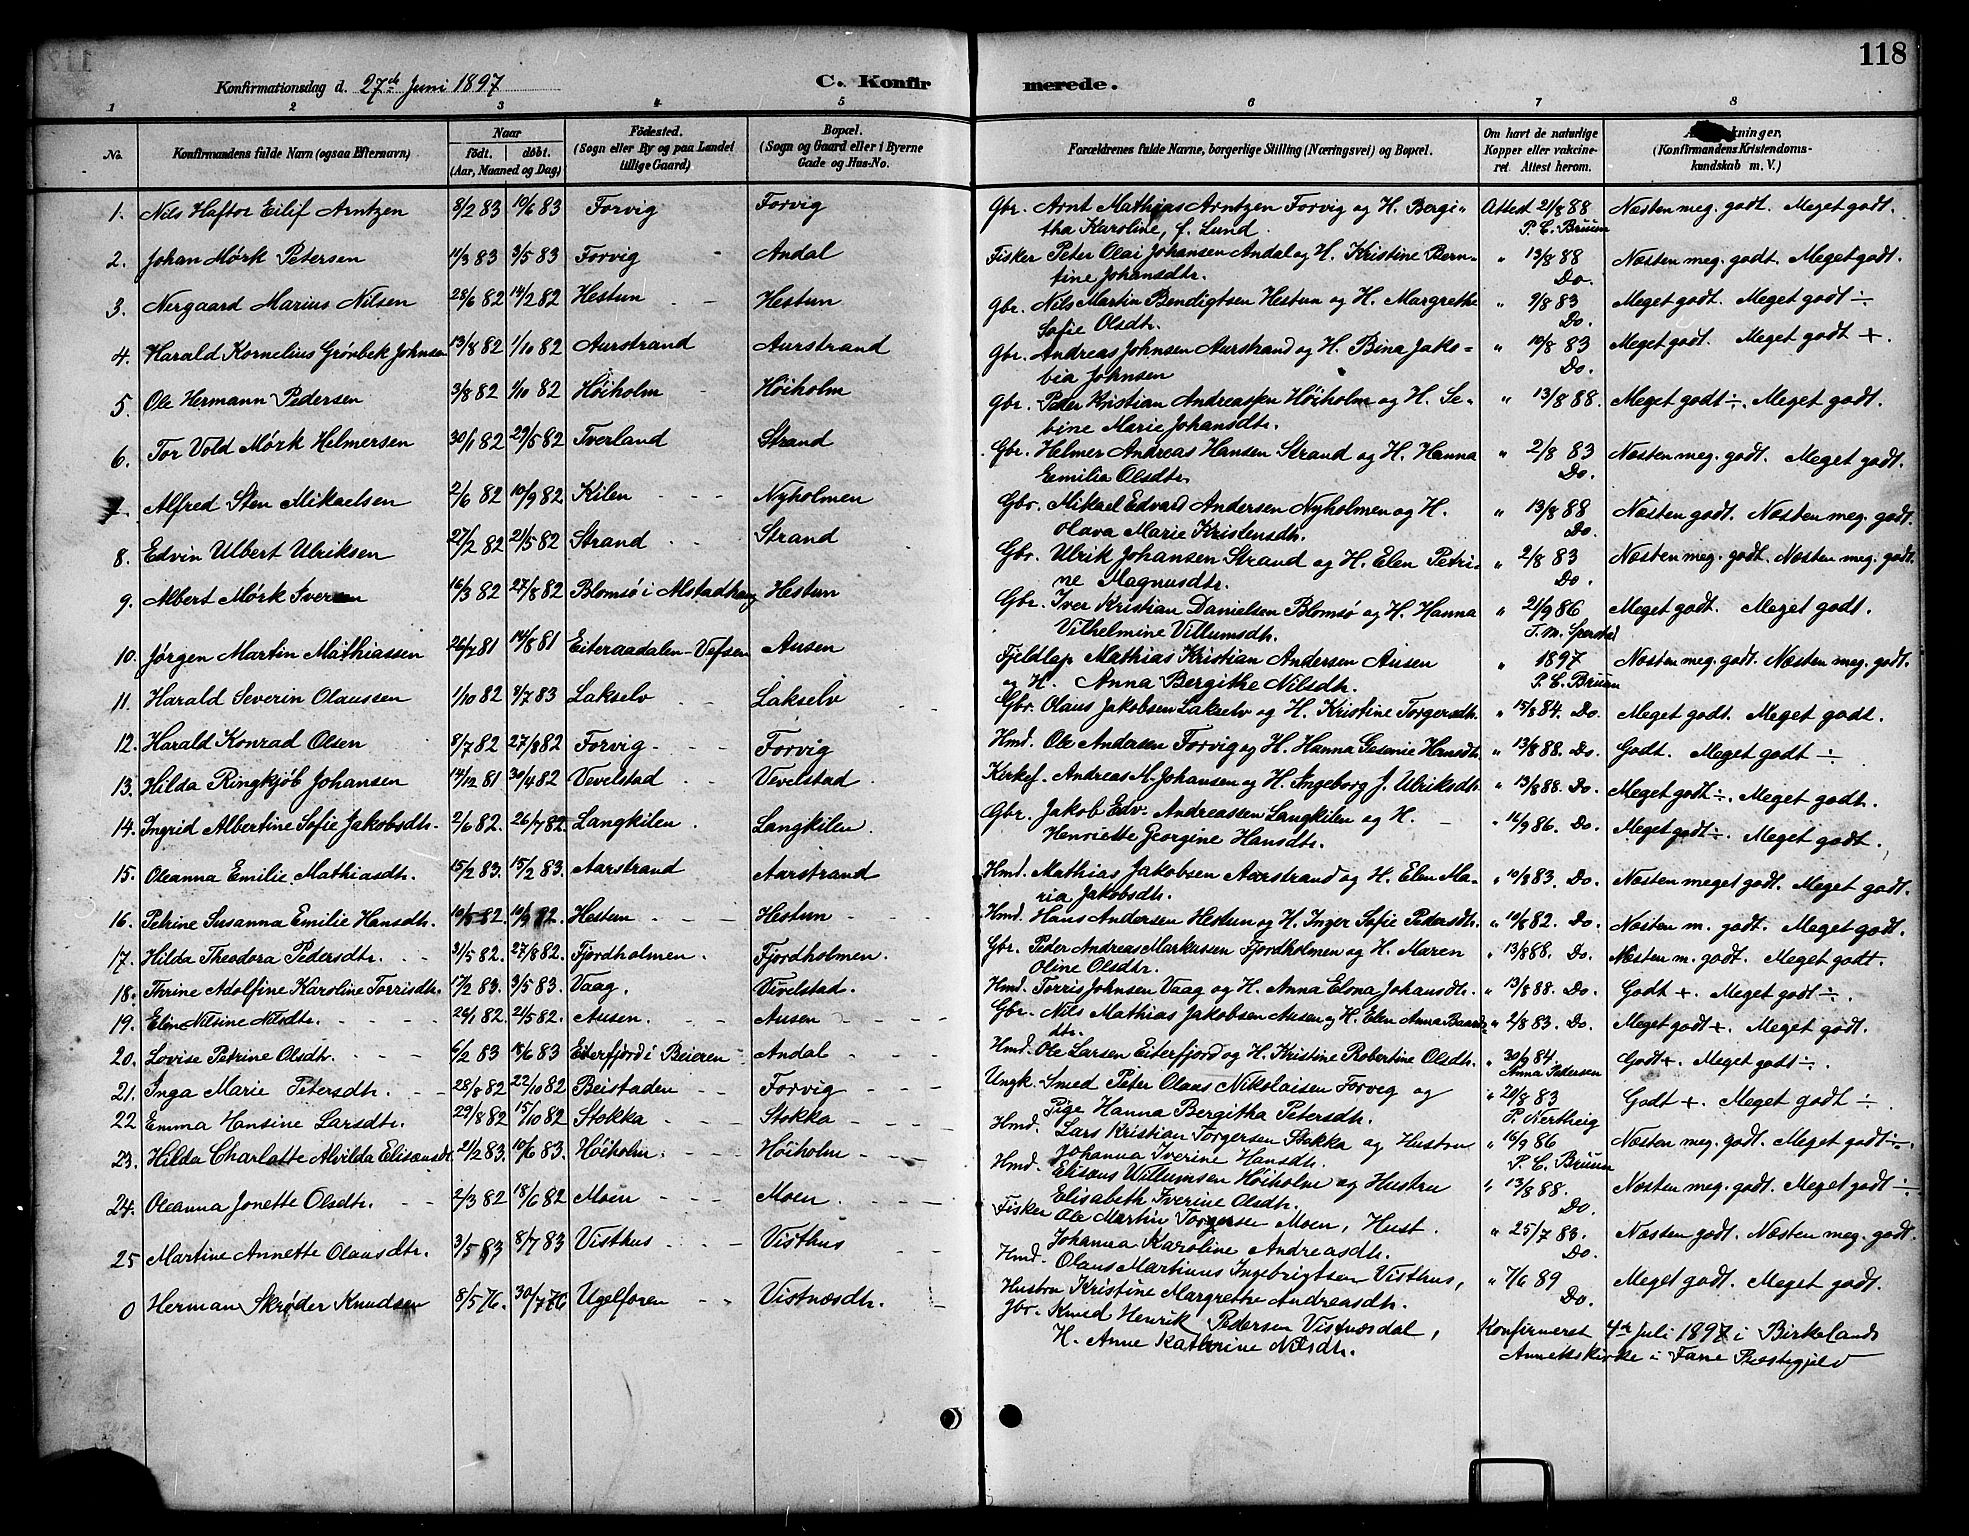 118
Konfirmationsdag d. 27de Juni 1897
C. Konfir merede.
1 2 3 4 5 6 7 8
No. Konfirmandens fulde Navn (ogsaa Efternavn) Naar født. døbt. (Aar, Maaned og Dag) Fødested. (Sogn eller By og paa Landet tillige Gaard) Bopæl. (Sogn og Gaard eller i Byerne Gade og Hus-No. Forældrenes fulde Navne, borgerlige Stilling (Næringsvei) og Bopæl. Om havt de naturlige Kopper eller vakcineret. Attest herom. kninger. (Konfirmandens Kristendomskundskab m. V.)
1. Nils Haftor Eilif Arntzen 8/2 83 10/6 83 Forvig Forvig Gbr. Arnt Mathias Arntzen Forvig og H. Bergi- Attest 21/8 88 Næsten meg. godt. Meget godt.
tha Karoline, f. Lund. P. C. Bruun
2. Johan Mørk Petersen 11/3 83 3/5 83 Forvig Andal Fisker Peter Olai Johansen Andal og H. Kristine Bern- " 13/8 88 Næsten meg. godt. Meget godt.
tine Johansdtr. Do.
3. Nergaard Marius Nilsen 28/6 82 14/2 82 Hestun Hestun Gbr. Nils Martin Bendigtsen Hestun og H. Margrethe " 9/8 83 Meget godt. Meget godt ÷
Sofie Olsdtr. Do.
4. Harald Kornelius Grønbek Johnsen 13/8 82 1/10 82 Aurstrand Aurstrand Gbr. Andreas Johnsen Aurstrand og H. Bina Jako- " 10/8 83 Meget godt. Meget godt +.
bia Johnsen Do.
5. Ole Hermann Pedersen 3/8 82 1/10 82 Høiholm Høiholm Gbr. Peder Kristian Andreassen Høiholm og H. Se- " 13/8 88. Meget godt ÷. Meget godt.
bine Marie Johansdtr.
6. Tor Vold Mørk Helmersen 30/1 82 29/5 82 Tverland Strand Gbr. Helmer Andreas Hansen Strand og H. Hanna " 2/8 83 Næsten meg. godt. Meget godt.
Emilia Olsdtr. Do.
7. Alfred Sten Mikaelsen 2/6 82 10/9 82 Kilen Nyholmen Gbr. Mikael Edvard Andersen Nyholmen og H. " 13/8 88 Næsten godt. Næsten meg. godt.
Olava Marie Kristensdtr. Do.
8. Edvin Ulbert Ulriksen 27/2 82 21/5 82 Strand Strand Gbr. Ulrik Johansen Strand og H. Elen Petri- " 2/8 83 Næsten meg. godt. Næsten meg. godt
ne Magnusdtr. Do.
9. Albert Mørk Iversen 16/3 82 27/8 82 Blomsø i Alstadhaug Hestun Gbr. Iver Kristian Danielsen Blomsø og H. Hanna " 21/9 86 Meget godt. Meget godt.
Vilhelmine Villumsdtr.
10. Jørgen Martin Mathiassen 26/7 81 14/8 81 Eiteraadalen-Vefsen Ausen Fjeldlap Mathias Kristian Andersen Ausen " 1897 Næsten meg. godt. Næsten meg. godt.
og H. Anna Bergithe Nilsdtr. P. C. Bruun
11. Harald Severin Olaussen 1/10 82 8/7 83 Lakselv Lakselv Gbr. Olaus Jakobsen Lakselv og H. Kristine Torgersdtr. " 15/8 84. Do. Meget godt. Meget godt.
12. Harald Konrad Olsen 8/7 82 27/8 82 Forvig Forvig Hmd. Ole Andersen Forvig og H. Hanna Gesenie Hansdtr. " 13/8 88. Do. Godt. Meget godt ÷
13. Hilda Ringkjøb Johansen 14/12 81 30/4 82 Vevelstad Vevelstad Kirkef. Andreas M. Johansen og H. Ingeborg J. Ulriksdtr. " 13/8 88. Do. Meget godt ÷. Meget godt.
14. Ingrid Albertine Sofie Jakobsdtr. 2/6 82. 26/7 82 Langkilen Langkilen. Gbr. Jakob Edv. Andreassen Langkilen og H. " 16/9 86. Do. Meget godt ÷. Meget godt.
Henriette Georgine Hansdtr.
15. Oleanna Emilie Mathiasdtr. 15/2 83. 15/2 83. Aarstrand Aarstrand Hmd. Mathias Jakobsen Aarstrand og H. Elen Ma- " 10/8 83. Do. Næsten meget godt. Meget godt.
ria Jakobsdtr.
16. Petrine Susanna Emilie Hansdtr. 10/5 82. 10/9 82. Hestun Hestun Hmd. Hans Andersen Hestun og H. Inger Sofie Pedersdtr. " 10/8 82. Do. Næsten m. godt. Meget godt.
17. Hilda Theodora Pedersdtr. 31/5 82. 27/8 82. Fjordholmen. Fjordholmen. Gbr. Peder Andreas Markussen Fjordholmen og H. Maren " 13/8 88. Do. Næsten m. godt. Meget godt.
Oline Olsdtr.
18. Thrine Adolfine Karoline Torrisdtr. 17/2 83. 3/5 83. Vaag. Vevelstad. Hmd. Torris Johnsen Vaag og H. Anna Elona Johansdtr. " 13/8 88. Do. Godt +. Meget godt ÷.
19. Eline Nilsine Nilsdtr. 29/1 82. 21/5 82. Ausen. Ausen Gbr. Nils Mathias Jakobsen Ausen og H. Elen Anna Baards- " 2/8 83. Do. Meget godt +. Meget godt.
dtr.
20. Lovise Petrine Olsdtr. 6/2 83 18/6 83 Eiterfjord i Beieren Andal Hmd. Ole Larsen Eiterfjord og H. Kristine Robertine Olsdtr. " 30/9 84. Godt +. Meget godt ÷.
Anna Pedersen
21. Inga Marie Petersdtr. 28/8 82 22/10 82 Beistaden Forvig Ungk. Smed Peter Olaus Nikolaisen Forvig og " 20/8 83 Godt +. Meget godt ÷
Pige Hanna Bergitha Petersdtr.
22 Emma Hansine Larsdtr. 29/8 82 15/10 82 Stokka Stokka Hmd. Lars Kristian Torgersen Stokka og Hustru " 16/9 86 Næsten meg. godt. Meget godt ÷.
Johanna Iverine Hansdtr. P. C. Bruun
23. Hilda Charlotte Alvilda Elisæusdtr. 21/2 83. 10/6 83. Høiholm. Høiholm Hmd. Elisæus Willumsen Høiholm og Hustru " 13/8 88. Næsten meg. godt. Meget godt ÷
Elisabeth Iverine Olsdtr. Do.
24. Oleanna Jonette Olsdtr. 2/3 82 18/6 82 Moen Moen. Fisker Ole Martin Torgersen Moen, Hust. " 25/7 83. Næsten godt. Næsten meg. godt.
Johanna Karoline Andreasdtr. Do.
25 Martine Annette Olausdtr. 3/5 83 8/7 83 Visthus Visthus Hmd. Olaus Martinus Ingebrigtsen Visthus, " 7/6 89 Meget godt. Meget godt.
Hustru Kristine Margrethe Andreasdtr. Do.
0 Herman Skrøder Knudsen 8/5 76. 30/7 76 Ugelforen Vistnæsdtr. Gbr. Knud Henrik Pedersen Vistnæsdal, Konfirmeret 4de Juli 1897 i Birkelands
H. Anne Kathrine Nilsdtr. Annekskirke i Fane Præstegjeld